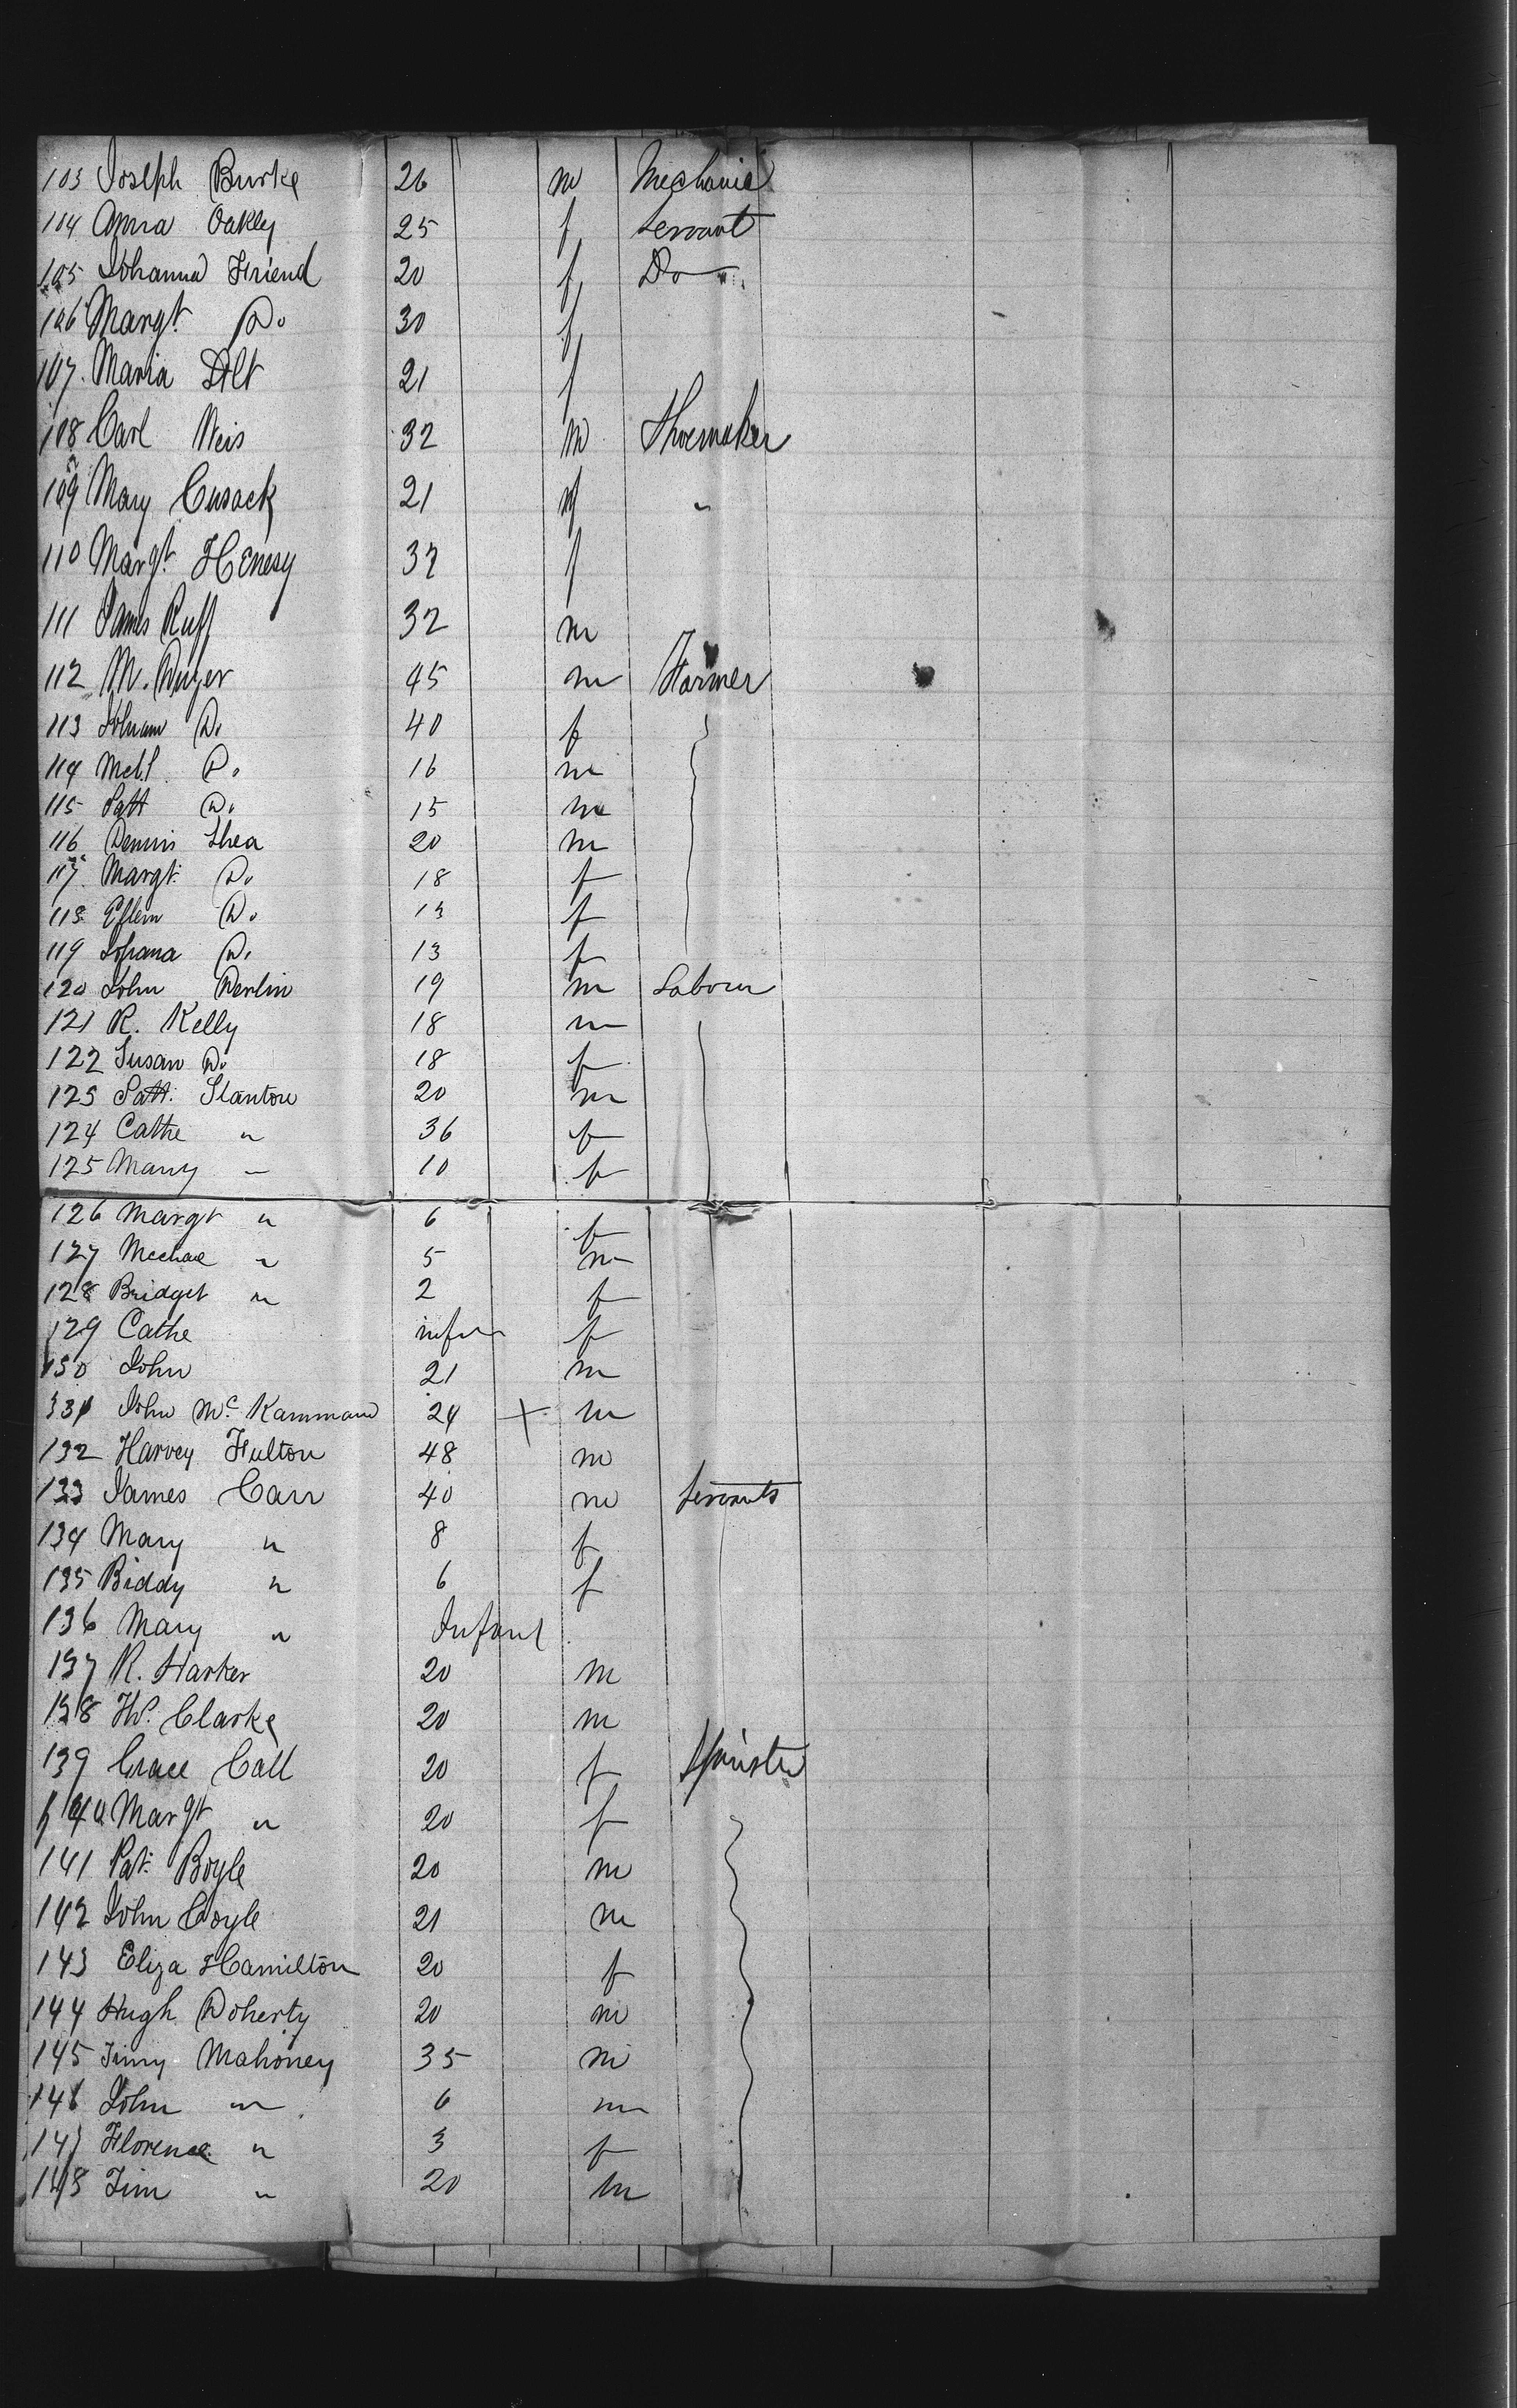 103 Joseph Burke 26 m Mechanic
104 Anna Oakley 25 f Servant
105 Johanna Friend 20 f Do
106 Margt. Do 30 f
107. Maria Alt 21 f
108 Carl Weis 32 m Shoemaker
109 Mary Cusack 21 f "
110 Margt. Henesy 32 f
111 James Ruff 32 m
112 M. Dwyer 45 m Farmer
113 Do 40 f
114 Mchl Do 16 m
115 Patt Do 15 m
116 Dennis Shea 20 m
117. Margt. Do 18 f
118 Ellen Do 13 f
119 Johana Do 13 f
120 John Derlin 19 m Labour
121 R. Kelly 18 m
122 Susan Do 18 f
123 Patt. Stanton 20 m
124 Cathe " 36 f
125 Mary " 10 f
126 Margt " 6 f
127 Mechae " 5 m
128 Bridget " 2 f
129 Cathe infan f
130 John 21 m
131 John Mc. Kammann 24 + m
132 Harvey Fulton 48 m
133 James Carr 40 m Servants
134 Mary " 8 f
135 Biddy " 6 f
136 Mary " Infant
137 R. Harker 20 m
138 W. Clarke 20 m
139 Grace Call 20 f Spinster
140 Margt " 20 f
141 Pat. Boyle 20 m
142 John Coyle 21 m
143 Eliza Hamilton 20 f
144 Hugh Doherty 20 m
145 Jimy Mahoney 35 m
146 John " 6 m
147 Florence " 3 f
148 Tim " 20 m